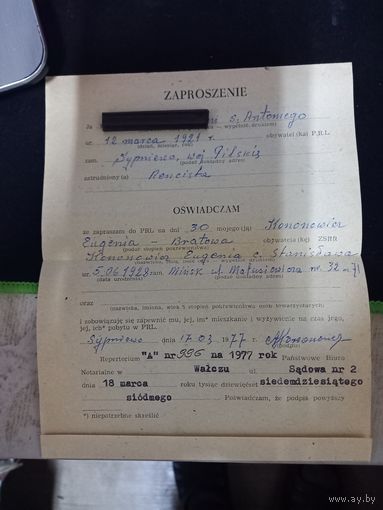 ZAPROSZENIE
Ja s. Antoniego
ur. 12 marca 1921 r. obywatel (ka) P.R.L.
(dzień, miesiąc, rok)
zam. Sypniewo, woj. Pilskie
(podać dokładny adres)
zatrudniony (a) Rencista
OŚWIADCZAM
że zapraszam do PRL na dni 30 mojego (ją) Kononowicz
Eugenia - Bratowa obywatela (kę) ZSRR
(podać stopień pokrewieństwa)
Kononowicz Eugenia c. Stanisława
ur. 5.06.1928 zam. Mińsk ul. Matusiewicza nr. 32 m 71
(data urodzenia) (podać dokładny adres)
oraz
(nazwiska, imiona, wiek i stopień pokrewieństwa osób towarzyszących)
i zobowiązuję się zapewnić mu, jej, im* mieszkanie i wyżywienie na czas jego,
jej, ich* pobytu w PRL.
Sypniewo dnia 17.03 1977 r.
(podpis)
Repertorium "A" nr 996 na 1977 rok Państwowe Biuro
Notarialne w Wałczu ul. Sądowa nr 2
dnia 18 marca roku tysiąc dziewięćset siedemdziesiątego
siódmego Poświadczam, że podpis powyższy
*) niepotrzebne skreślić
https://av.by.ay.by